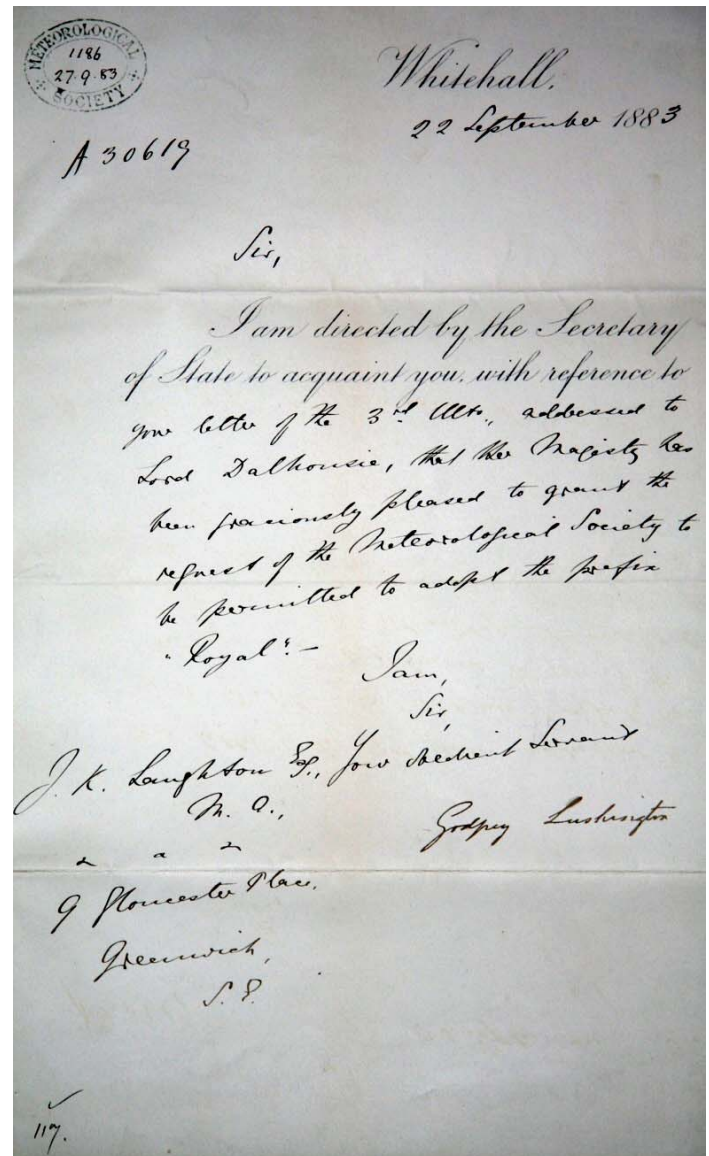 METEOROLOGICAL SOCIETY
1186
27.9.83
Whitehall,
22 September 1883
A 30619
Sir,
I am directed by the Secretary
of State to acquaint you, with reference to
your letter of the 3rd Ulto., addressed to
Lord Dalhousie, that Her Majesty has
been graciously pleased to grant the
request of the Meteorological Society to
be permitted to adopt the prefix
"Royal".-
I am,
Sir,
Your obedient Servant
Godfrey Lushington
J. K. Laughton Esq.,
M. A.,
9 Gloucester Place,
Greenwich,
S. E.
117.